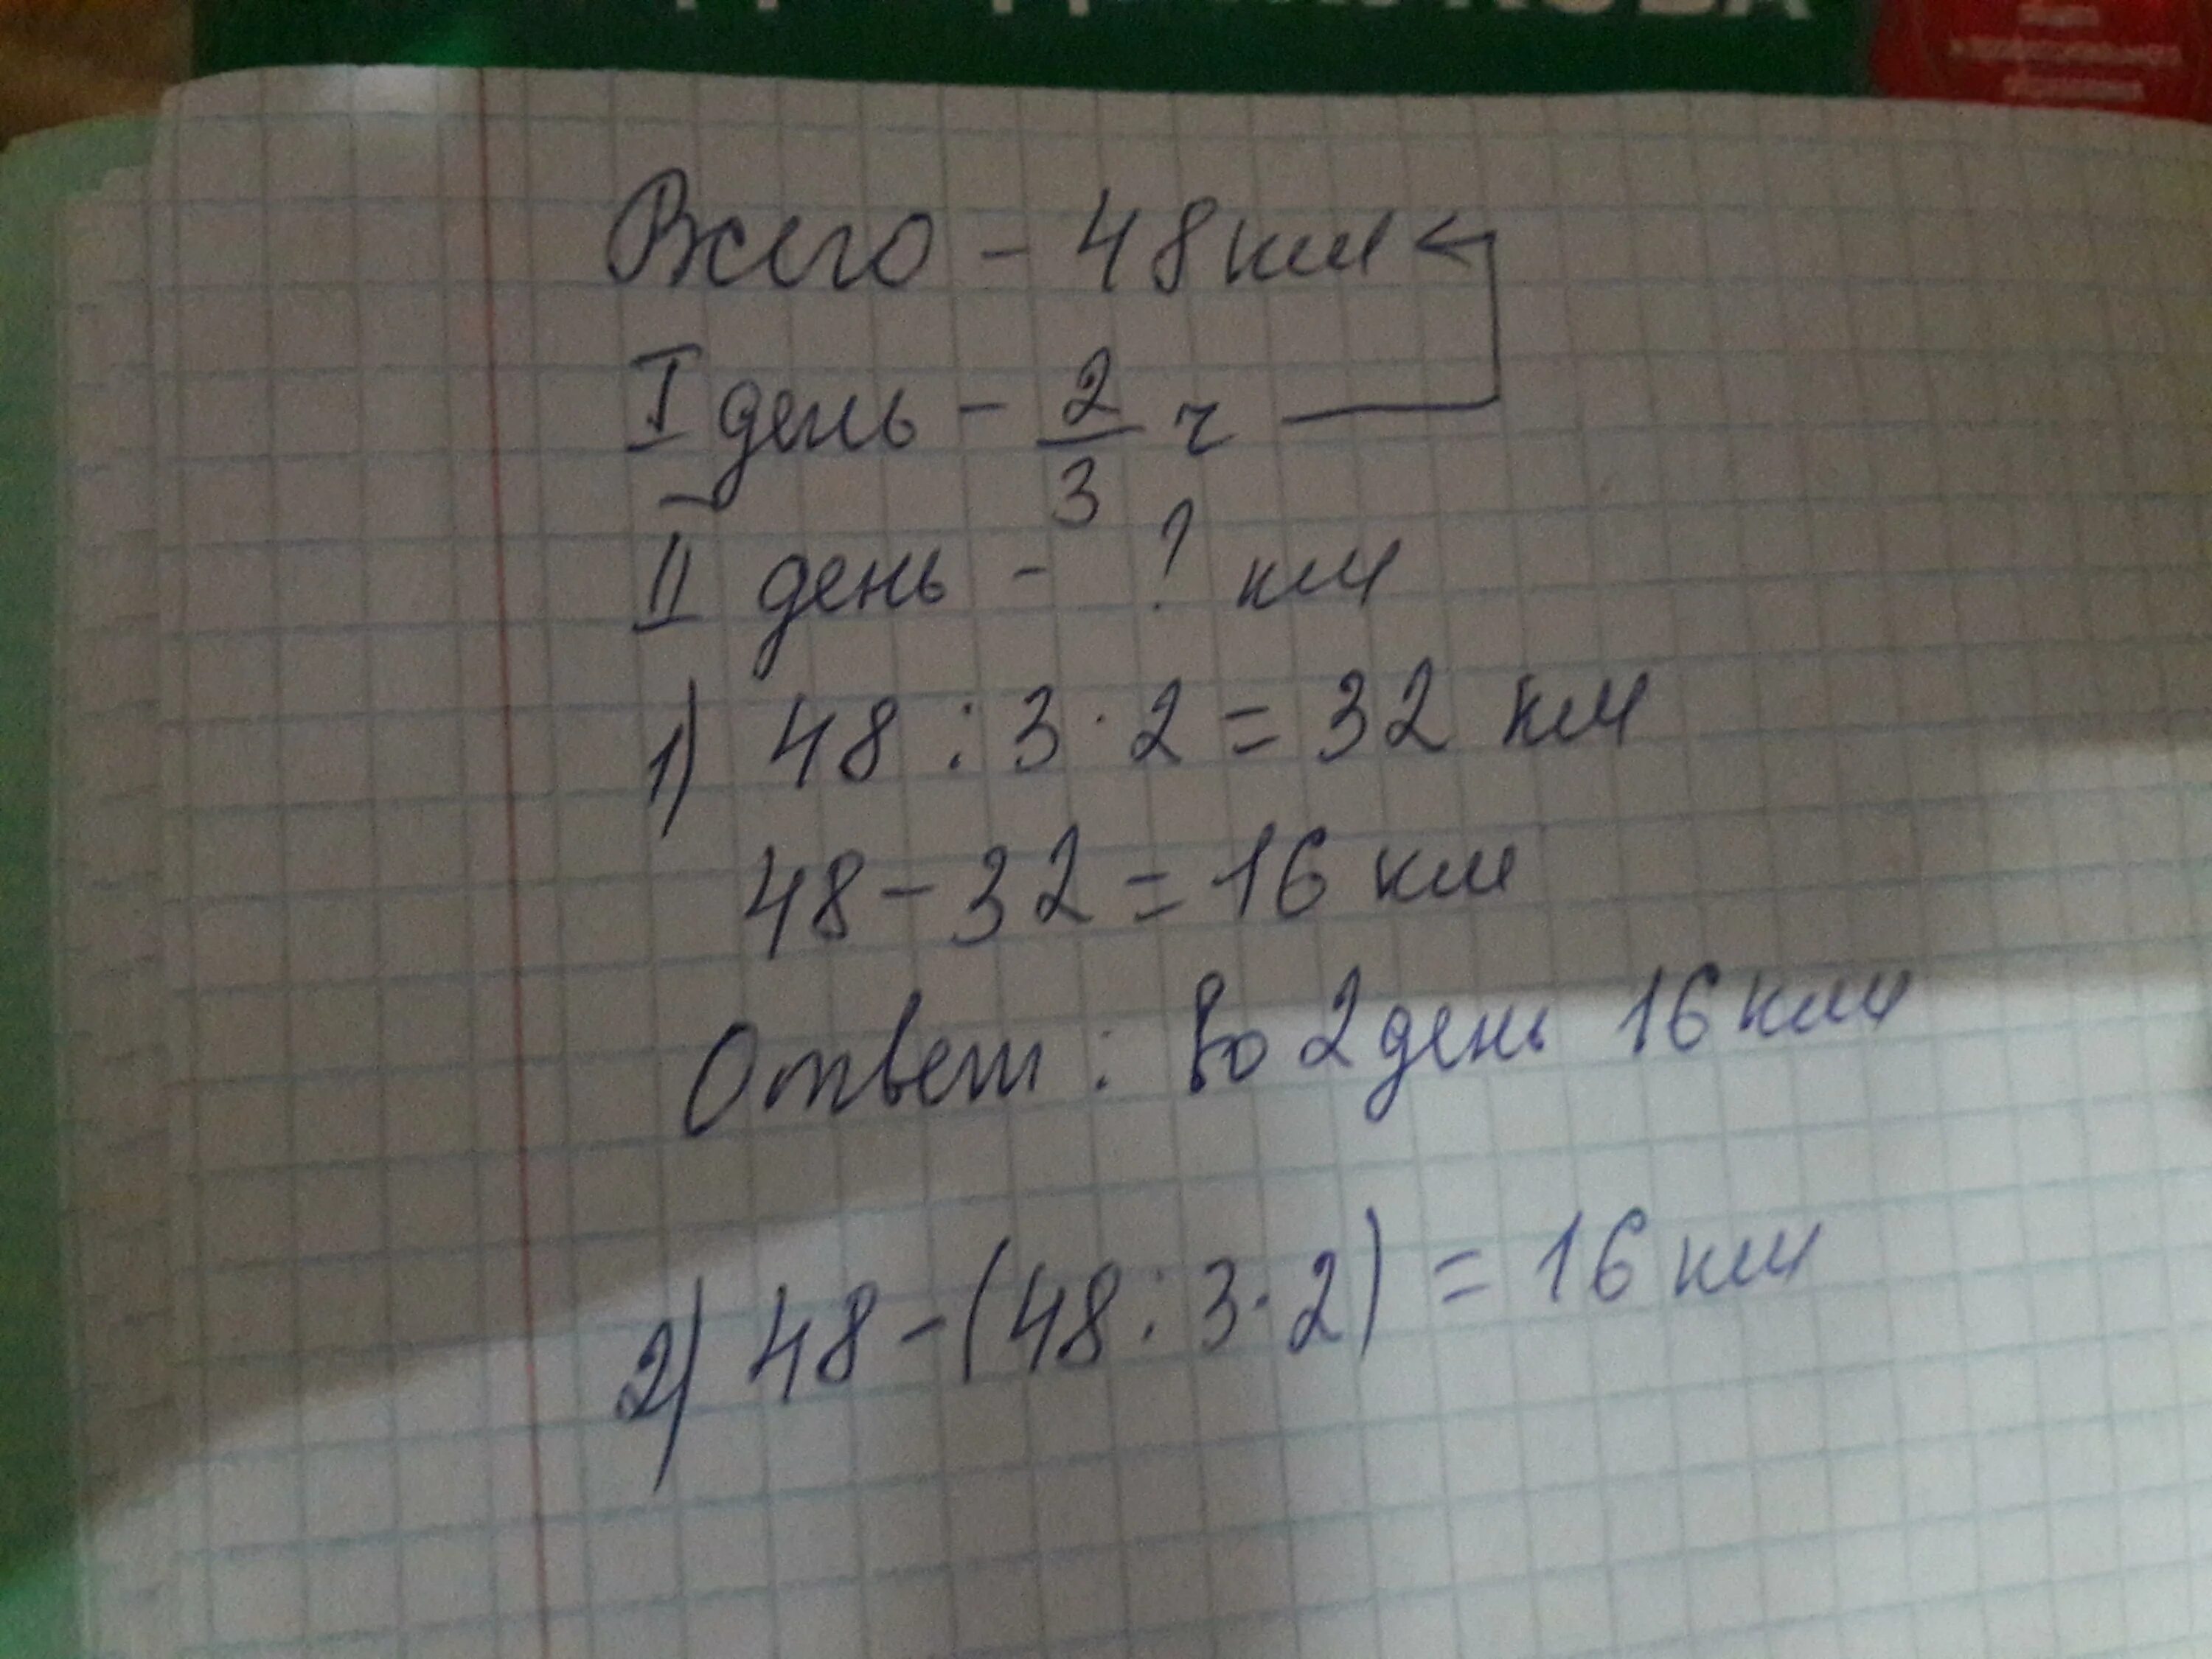 Всего - 48 км
I день - 2/3 ч
II день - ? км
1) 48 : 3 · 2 = 32 км
48 - 32 = 16 км
Ответ : Во 2 день 16 км
2) 48 - (48 : 3 · 2) = 16 км